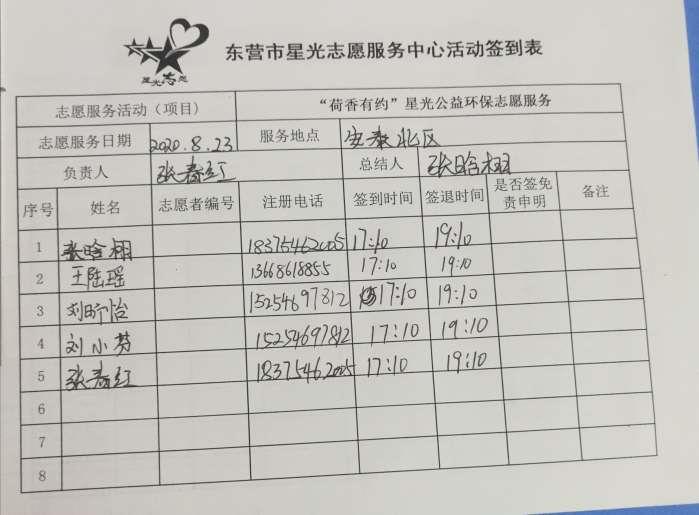 星光志愿
东营市星光志愿服务中心活动签到表
志愿服务活动（项目） “荷香有约”星光公益环保志愿服务
志愿服务日期 2020.8.23 服务地点 安泰北区
负责人 张春红 总结人 张晗栩
序号 姓名 志愿者编号 注册电话 签到时间 签退时间 是否签免责申明 备注
1 张晗栩 18375462005 17:10 19:10
2 王陆瑶 13668618855 17:10 19:10
3 刘昕怡 15254697812 17:10 19:10
4 刘小芬 15254697812 17:10 19:10
5 张春红 18375462005 17:10 19:10
6
7
8